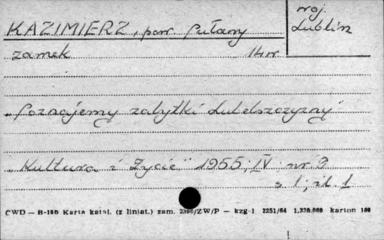 KAZIMIERZ, pow. Puławy
woj. Lublin
zamek 14 w
„Poznajemy zabytki Lubelszczyzny"
„Kultura i Życie" 1955; IV; nr. 9
s. 1; il. 1
CWD — B-160 Karta katal. (z liniat.) zam. 2306/ZW/P — kzg-1 2251/64 1.320.000 karton 180